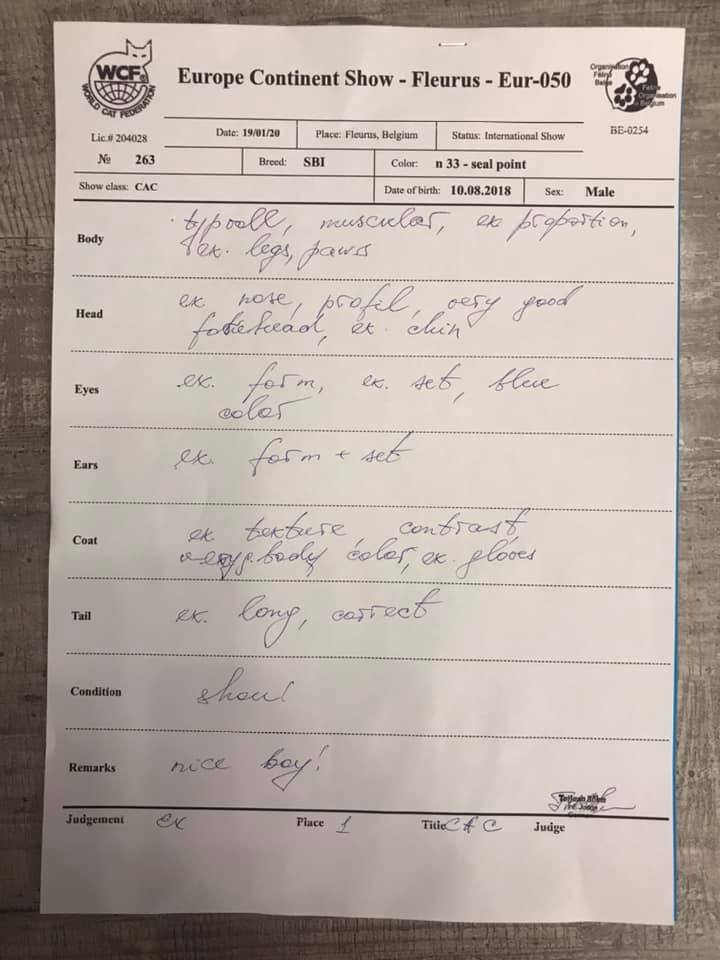 WCF®
WORLD CAT FEDERATION
Europe Continent Show - Fleurus - Eur-050
Organisation Féline Belge
Feline Organisation Belgium
Lic.# 204028
Date: 19/01/20
Place: Fleurus, Belgium
Status: International Show
BE-0254
№ 263
Breed: SBI
Color: n 33 - seal point
Show class: CAC
Date of birth: 10.08.2018
Sex: Male
Body
muscular, ex proportion,
ex. legs, paws
Head
ex nose, profil, very good
forehead, ex. chin
Eyes
ex. form, ex. set, blue
color
Ears
ex. form + set
Coat
ex texture contrast
very g. body color, ex. gloves
Tail
ex. long, correct
Condition
show!
Remarks
nice boy!
Judgement ex
Place 1
Title CAC
Judge